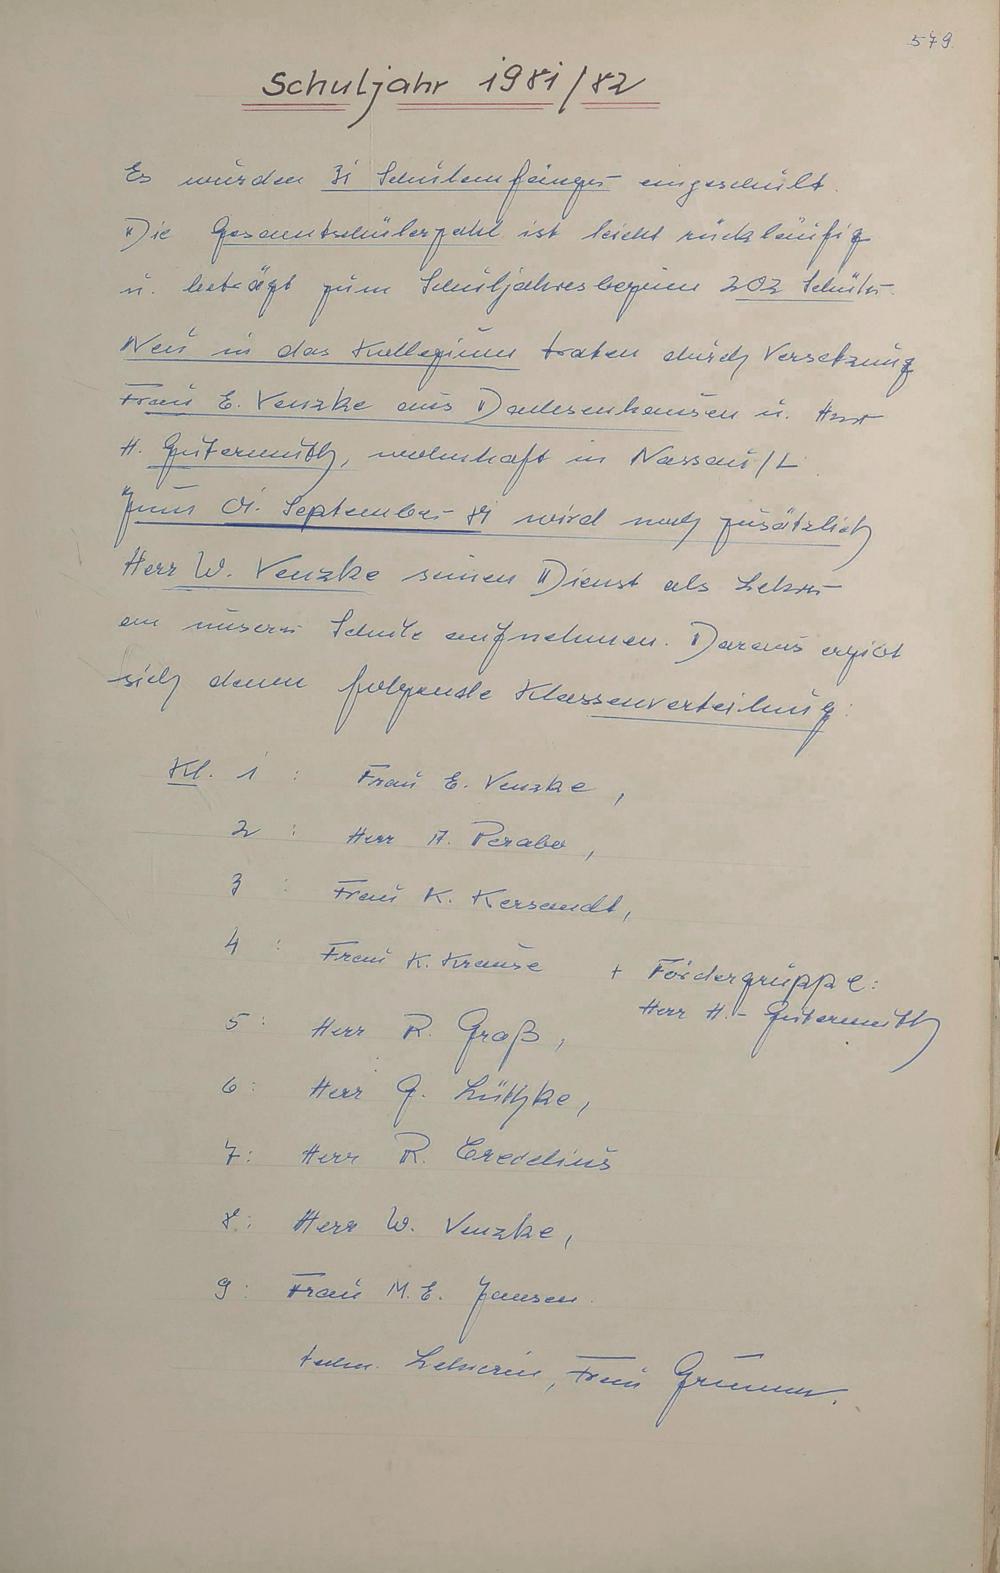 579.
Schuljahr 1981/82
Es wurden 31 Schulanfänger eingeschult.
Die Gesamtschülerzahl ist leicht rückläufig
u. beträgt zum Schuljahresbeginn 202 Schüler.
Neu in das Kollegium traten durch Versetzung
Frau E. Venzke aus Dachsenhausen u. Herr
H. Gutermuth, wohnhaft in Nassau/L
Zum 01. September 81 wird noch zusätzlich
Herr W. Venzke seinen Dienst als Lehrer
an unserer Schule aufnehmen. Daraus ergibt
sich dann folgende Klassenverteilung:
Kl. 1 : Frau E. Venzke,
2 : Herr A. Perabo,
3 : Frau K. Kersandt,
4 : Frau K. Krause + Fördergruppe:
Herr H. Gutermuth
5 : Herr R. Groß,
6 : Herr G. Lüthke,
7 : Herr R. Credelius
8 : Herr W. Venzke,
9 : Frau M. E. Jansen.
techn. Lehrerin, Frau